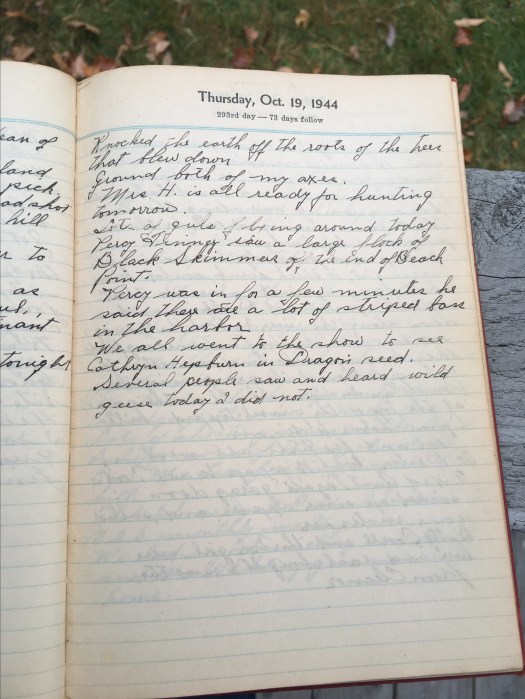 ean of
land
pick
adshot
hill
r to
as
ul.,
nant
tonight
Thursday, Oct. 19, 1944
293rd day — 73 days follow
Knocked the earth off the roots of the trees
that blew down
Ground both of my axes.
Mrs H. is all ready for hunting
tomorrow.
Lots of gulls flying around today
Percy Finney saw a large flock of
Black Skimmers of the end of Beach
Point.
Percy was in for a few minutes he
said there are a lot of striped bass
in the harbor
We all went to the show to see
Cathryn Hepburn in Dragon seed.
Several people saw and heard wild
geese today I did not.